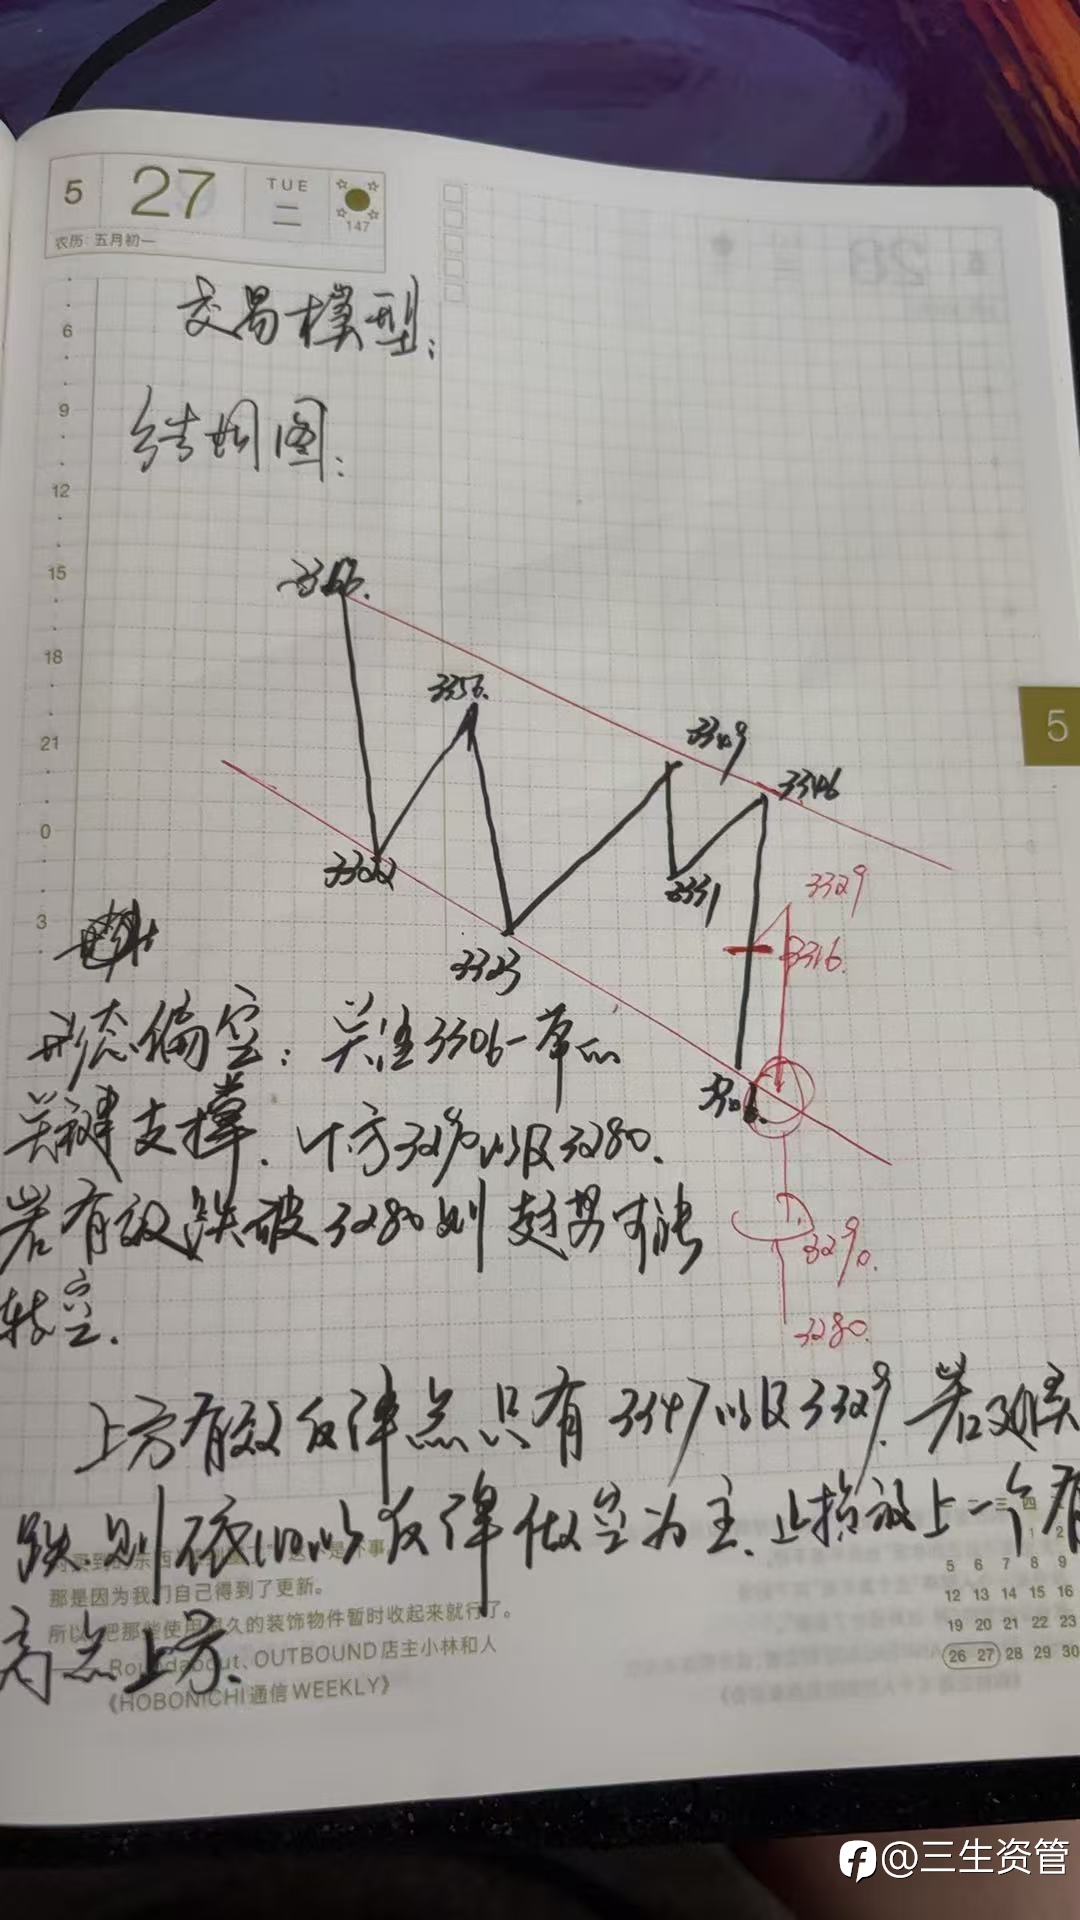 5 27 TUE 二
147
农历: 五月初一
交易模型:
6
9
结构图:
12
15
18
3356.
21
3349
3346
5
0
3322
3331
3329
3
3316.
3323
形态偏空: 关注3306一带的
关键支撑. 下方3290以及3280.
3306.
若有效跌破3280则趋势可能
3290.
转空.
3280.
上方有效反弹点只有3347以及3329. 若延续
跌.则依旧以反弹做空为主.止损放上一个有
高点上方.
四
1 2
5 6 7 8 9
12 13 14 15 16
19 20 21 22 23
26 27 28 29 30
那是因为我们自己得到了更新。
久的装饰物件暂时收起来就行了。
Roundabout、OUTBOUND店主小林和人
《HOBONICHI通信WEEKLY》
@三生资管